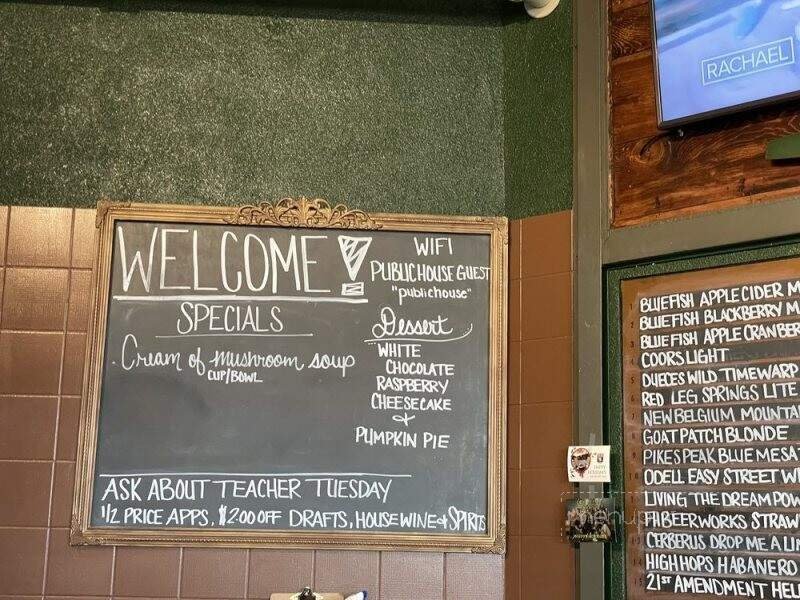 RACHAEL
WELCOME!
SPECIALS
Cream of mushroom soup
CUP/BOWL
WIFI
PUBLICHOUSE GUEST
"publichouse"
Dessert
WHITE
CHOCOLATE
RASPBERRY
CHEESECAKE
&
PUMPKIN PIE
ASK ABOUT TEACHER TUESDAY
1/2 PRICE APPS, $2.00 OFF DRAFTS, HOUSE WINE & SPIRITS
BLUEFISH APPLE CIDER M
BLUEFISH BLACKBERRY M
BLUEFISH APPLE CRANBER
COORS LIGHT
DUECES WILD TIMEWARP
RED LEG SPRINGS LITE
NEW BELGIUM MOUNTA
GOAT PATCH BLONDE
PIKES PEAK BLUE MESA
ODELL EASY STREET W
LIVING THE DREAM POW
BEERWORKS STRAW
CERBERUS DROP ME A LI
HIGH HOPS HABANERO
21ST AMENDMENT HEL